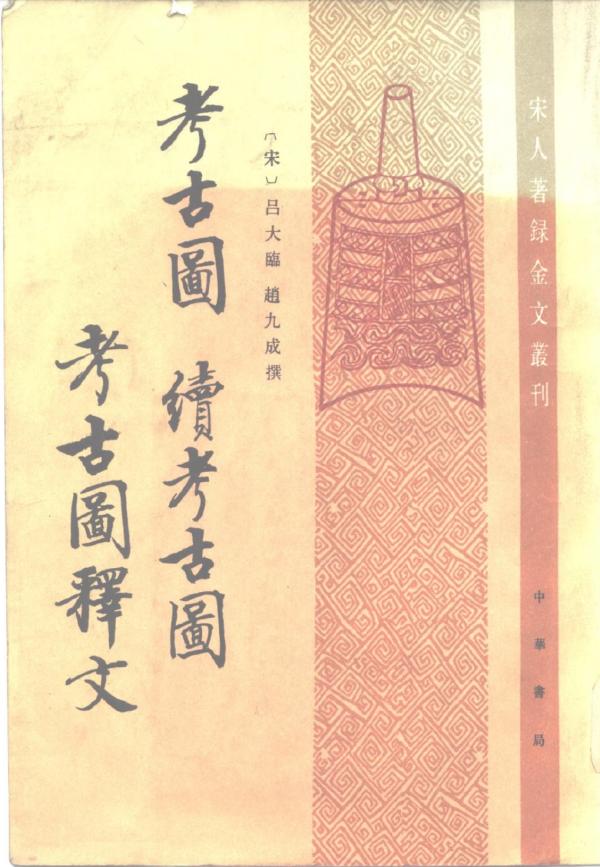 宋人著録金文叢刊
中華書局
〔宋〕吕大臨 趙九成撰
考古圖 續考古圖
考古圖釋文